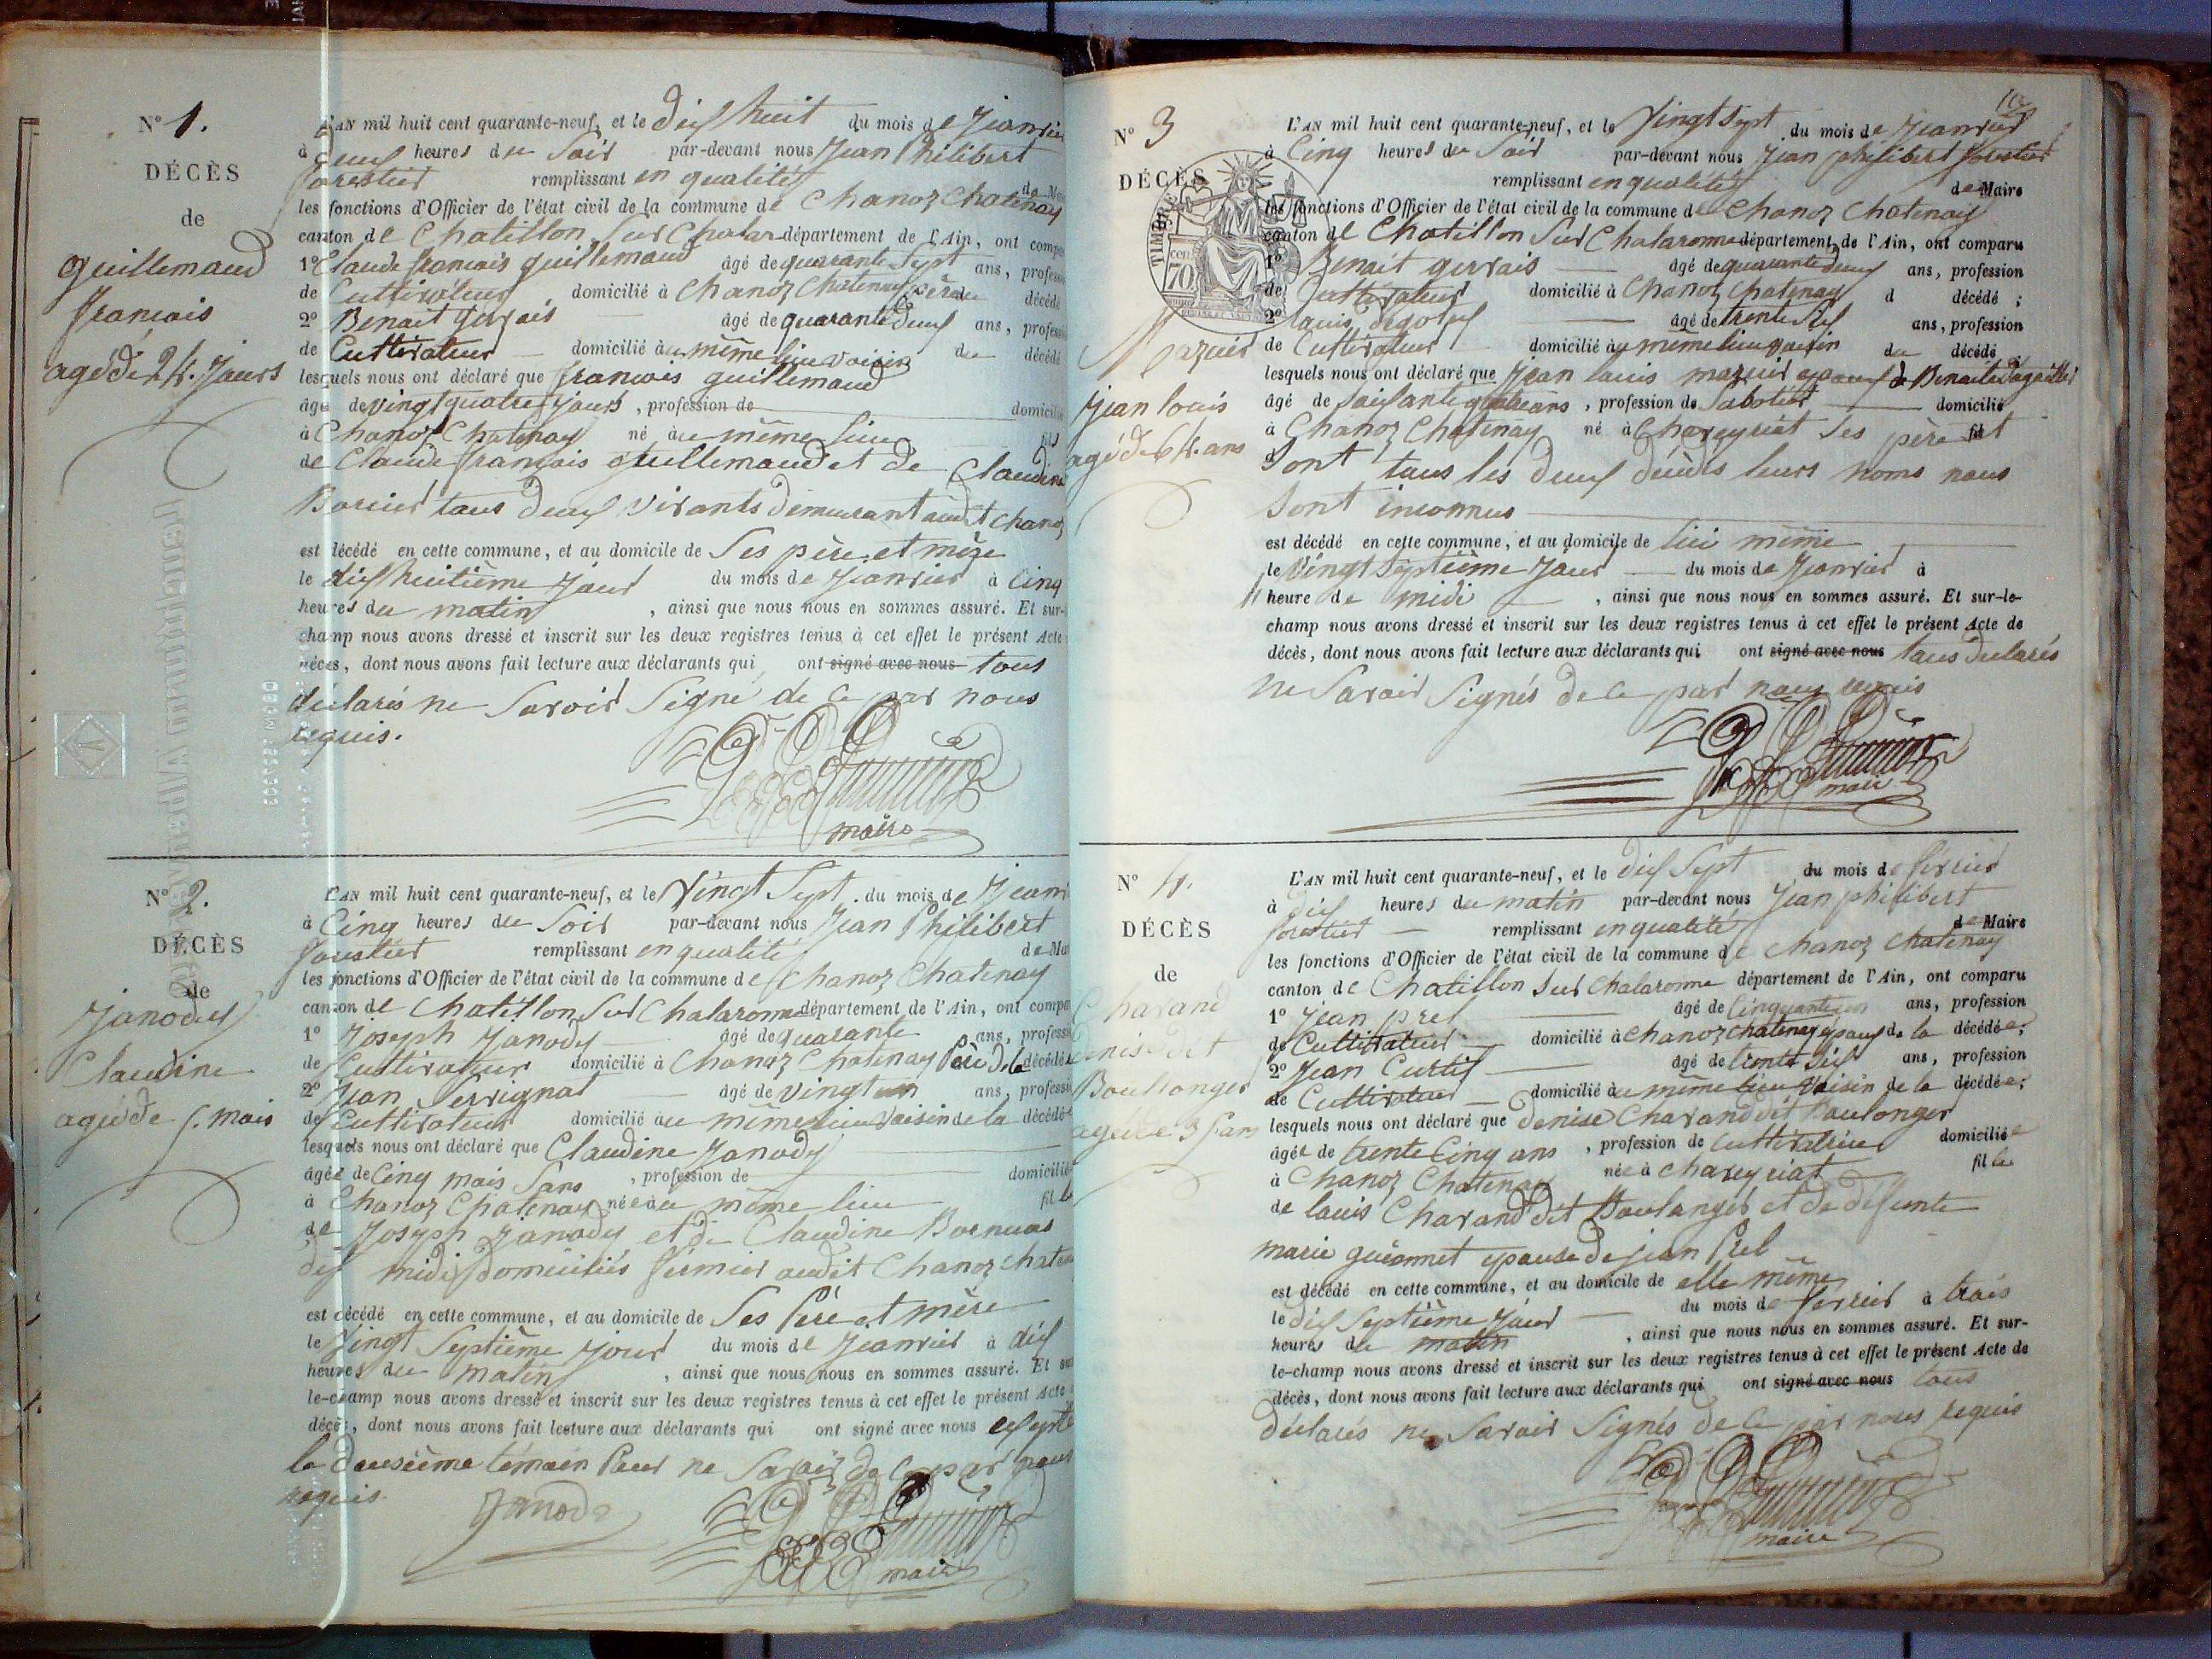 N° 1.
DÉCÈS
de
guillemaud
francois
agé de 24 jours
L'AN mil huit cent quarante-neuf, et le dix huit du mois de Janvier
à deux heures du Soir par-devant nous Jean Philibert
forestier remplissant en qualité de
les fonctions d'Officier de l'état civil de la commune de Chanoz Chatenay
canton de Chatillon Sur Chalar département de l'Ain, ont
1° Claude francois guillemaud âgé de quarante Sept ans,
de Cultivateur domicilié à Chanoz Chatenay père du décédé
2° Benait gervais âgé de quarante deux ans,
de Cultivateur domicilié au même lieu voisin du décédé
lesquels nous ont déclaré que francois guillemaud
âgé de vingt quatre jours, profession de
à Chanoz Chatenay né au même lieu fils
de Claude francois guillemaud et de Claudine
tous deux vivants demeurant audit Chanoz
est décédé en cette commune, et au domicile de Ses père et mère
le dix huitième jour du mois de Janvier à Cinq
heures du matin, ainsi que nous nous en sommes assuré. Et sur-
champ nous avons dressé et inscrit sur les deux registres tenus à cet effet le présent Acte
décès, dont nous avons fait lecture aux déclarants qui ont signé avec nous tous
déclarés ne Savoir Signé de ce par nous
requis.
maire
N° 2.
DÉCÈS
de
Janody
Claudine
agée de 5 mois
L'AN mil huit cent quarante-neuf, et le Vingt Sept du mois de
à Cinq heures du Soir par-devant nous Jean Philibert
forestier remplissant en qualité de
les fonctions d'Officier de l'état civil de la commune de Chanoz Chatenay
canton de Chatillon Sur Chalaronne département de l'Ain, ont
1° Joseph Janody âgé de quarante ans,
de Cultivateur domicilié à Chanoz Chatenay Père de la décédée
2° Jean Serrignat âgé de vingt un ans,
de Cultivateur domicilié au même lieu voisin de la décédée
lesquels nous ont déclaré que Claudine Janody
âgée de Cinq mois Sans, profession de domiciliée
à Chanoz Chatenay née au même lieu fille
de Joseph Janody et de Claudine
domiciliés fermier audit Chanoz
est décédé en cette commune, et au domicile de Ses Père et mère
le Vingt Septième jour du mois de Janvier à dix
heures du matin, ainsi que nous nous en sommes assuré. Et
le-champ nous avons dressé et inscrit sur les deux registres tenus à cet effet le présent Acte
décès, dont nous avons fait lecture aux déclarants qui ont signé avec nous
le deusième témoin Pour ne Savoir de ce par nous
requis.
Janody
maire
N° 3
DÉCÈS
TIMBRE
70
mazuir
Jean louis
agé de 64 ans
L'AN mil huit cent quarante-neuf, et le Vingt Sept du mois de Janvier
à Cinq heures du Soir par-devant nous Jean philibert forestier
remplissant en qualité de Maire
les fonctions d'Officier de l'état civil de la commune de Chanoz Chatenay
canton de Chatillon Sur Chalaronne département de l'Ain, ont comparu
1° Benait gervais âgé de quarante deux ans, profession
de Cultivateur domicilié à Chanoz Chatenay d décédé;
2° louis âgé de trente Six ans, profession
de Cultivateur domicilié au même lieu voisin du décédé
lesquels nous ont déclaré que Jean louis mazuir epoux de Benaite
âgé de soixante quatre ans, profession de Sabotier domicilié
à Chanoz Chatenay né à Chaveyriat Ses père et
Sont tous les deux décédés leurs noms nous
Sont inconnus
est décédé en cette commune, et au domicile de lui même
le Vingt Septième Jour du mois de Janvier à
heure de midi, ainsi que nous nous en sommes assuré. Et sur-le-
champ nous avons dressé et inscrit sur les deux registres tenus à cet effet le présent Acte de
décès, dont nous avons fait lecture aux déclarants qui ont signé avec nous tous déclarés
ne Savoir Signés de ce par nous requis
maire
N° 4.
DÉCÈS
de
Charand
denise dit
Boullonger
agée de 35 ans
L'AN mil huit cent quarante-neuf, et le dix Sept du mois de février
à dix heures du matin par-devant nous Jean philibert
forestier remplissant en qualité de Maire
les fonctions d'Officier de l'état civil de la commune de Chanoz Chatenay
canton de Chatillon Sur Chalaronne département de l'Ain, ont comparu
1° Jean prel âgé de Cinquante un ans, profession
de Cultivateur domicilié à Chanoz Chatenay epoux de la décédée;
2° Jean Curtil âgé de trente Six ans, profession
de Cultivateur domicilié au même lieu voisin de la décédée;
lesquels nous ont déclaré que denise Charand dit Boulonger
âgée de trente Cinq ans, profession de Cultivatrice domiciliée
à Chanoz Chatenay née à Chaveyriat fille
de louis Charand dit Boulanger et de defunte
marie guionnet epouse de jean Prel
est décédé en cette commune, et au domicile de elle même
le dix Septième Jour du mois de fevrier à trois
heures du matin, ainsi que nous nous en sommes assuré. Et sur-
le-champ nous avons dressé et inscrit sur les deux registres tenus à cet effet le présent Acte de
décès, dont nous avons fait lecture aux déclarants qui ont signé avec nous tous
déclarés ne Savoir Signés de ce par nous requis
maire